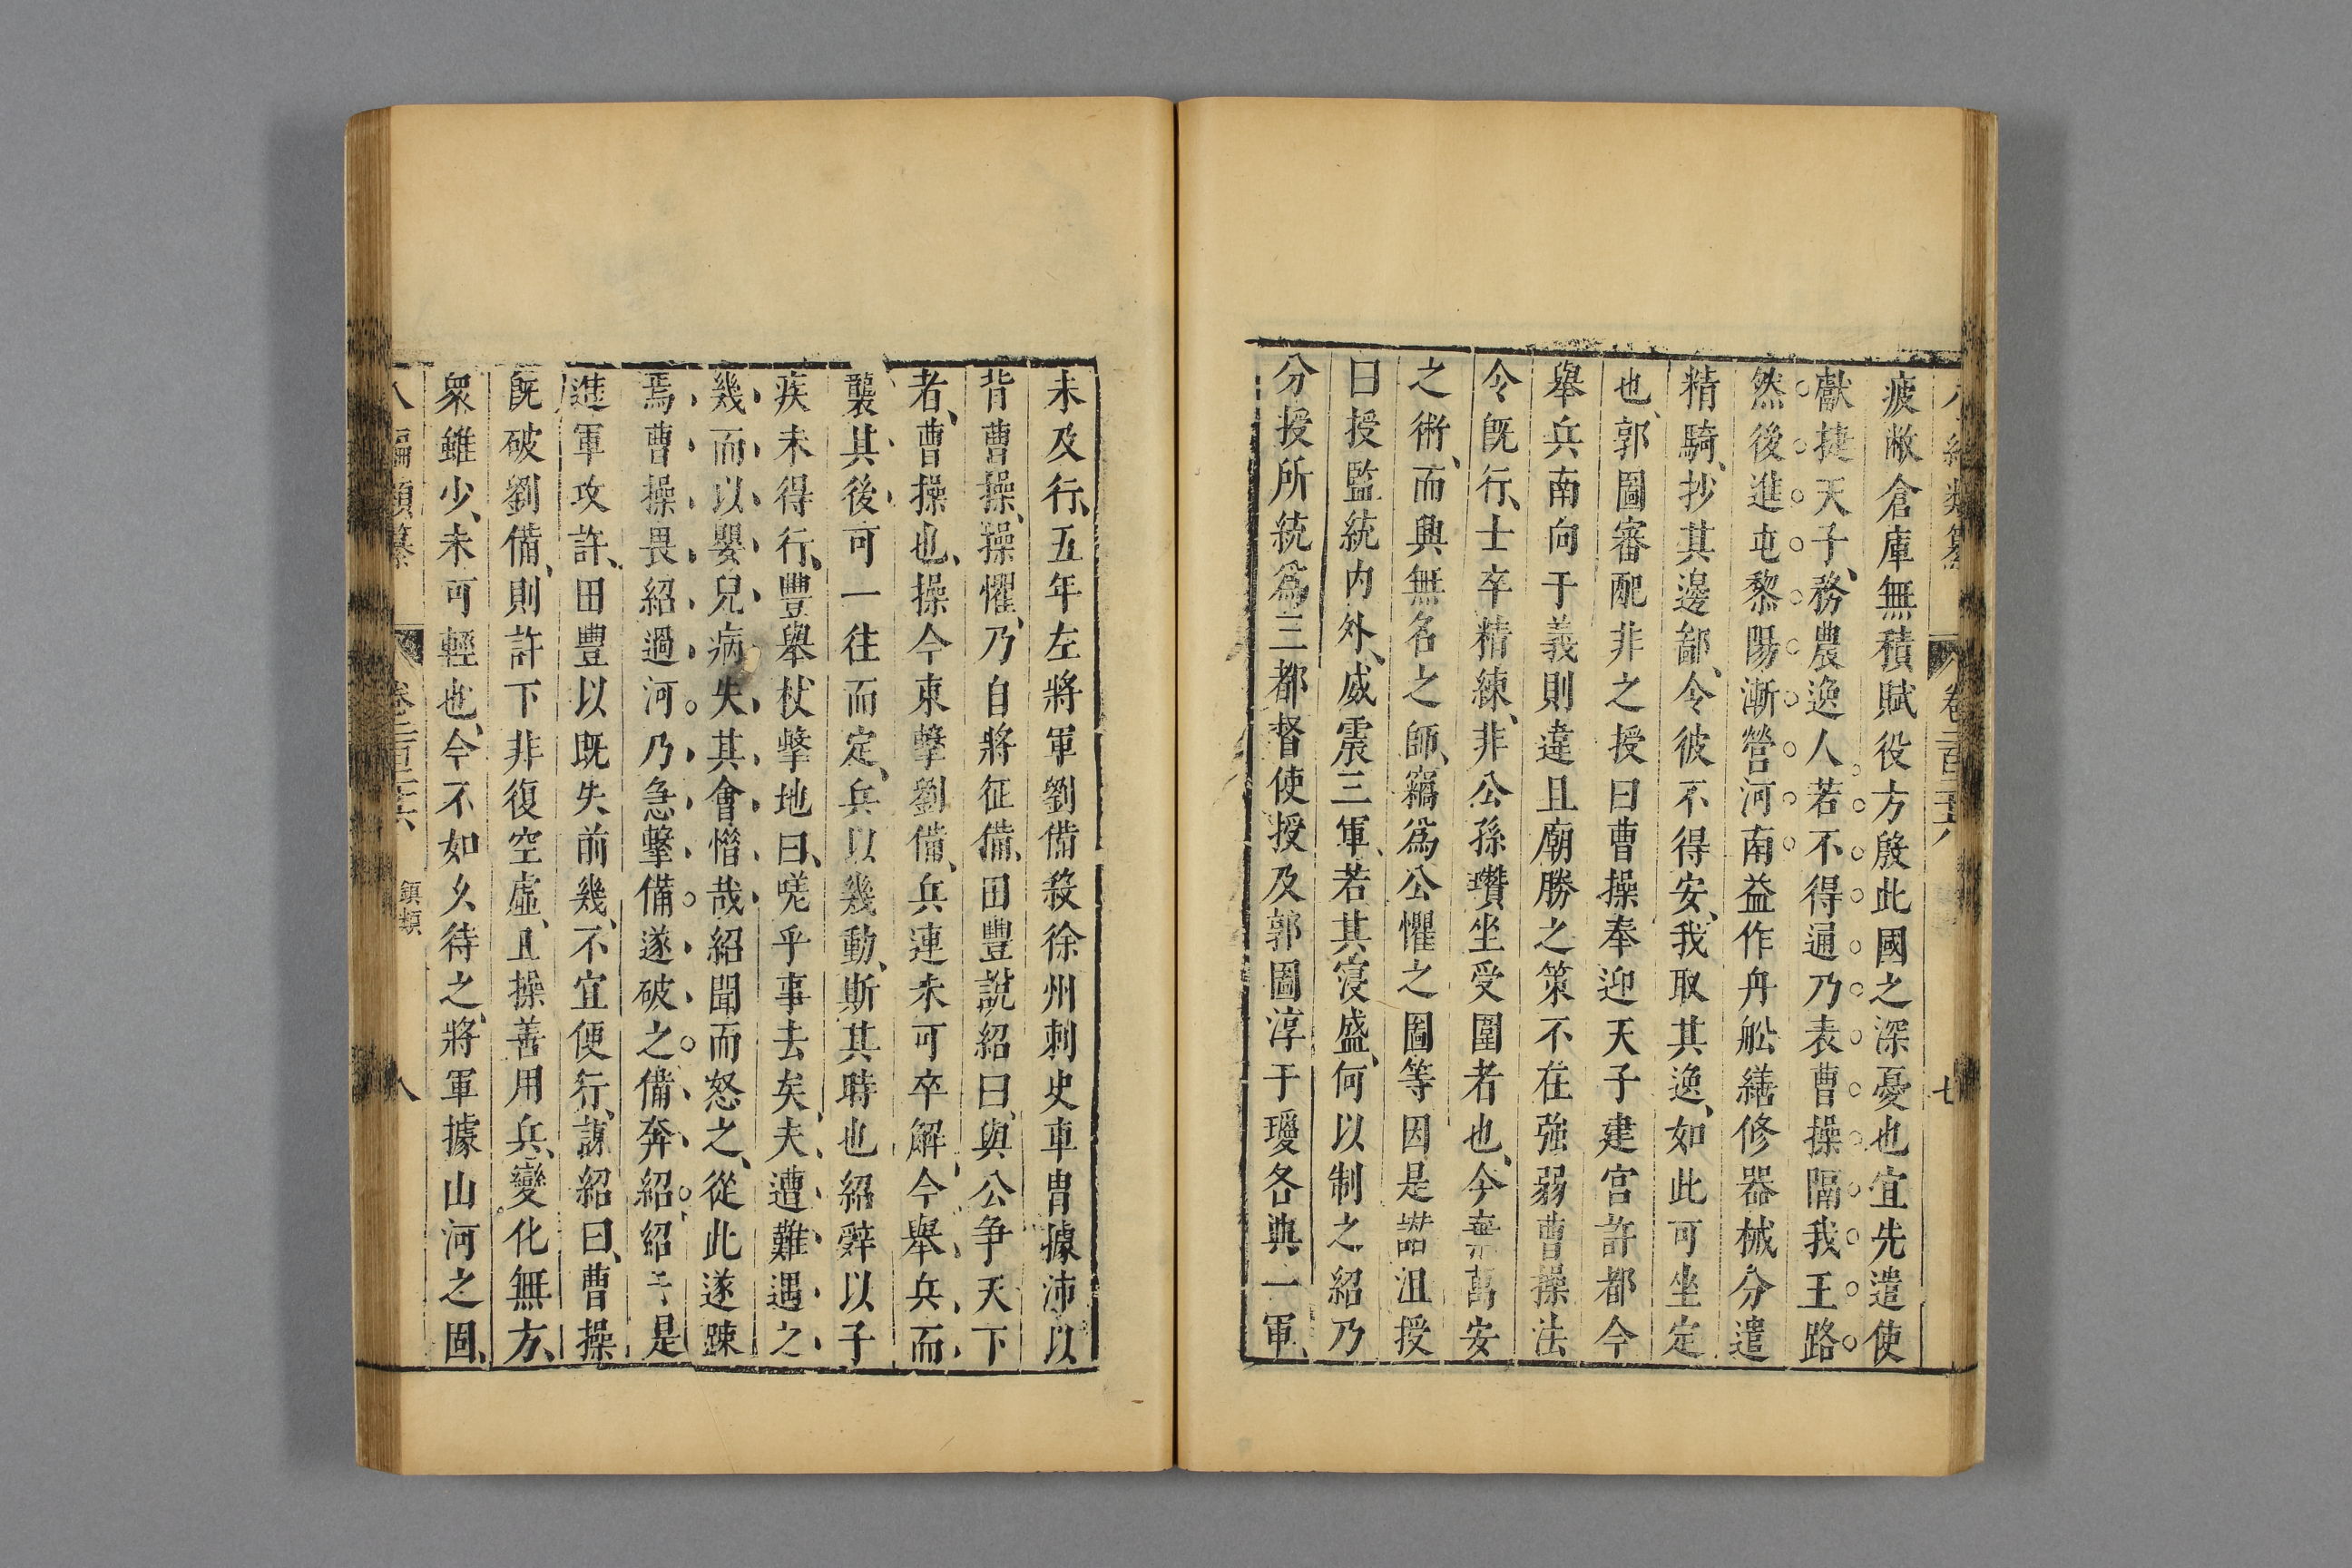 疲敝倉庫無積賦役方殷此國之深憂也宜先遣使
獻捷天子、務農逸人若不得通乃表曹操隔我王路
然後進屯黎陽漸營河南益作舟舩繕修器械分遣
精騎、抄其邊鄙、令彼不得安、我取其逸、如此可坐定
也、郭圖審配非之授曰曹操奉迎天子建宮許都今
舉兵南向于義則違且廟勝之策不在強弱曹操法
令既行、士卒精練、非公孫瓚坐受圍者也、今棄萬安
之術、而興無名之師、竊爲公懼之圖等因是譖沮授
曰授監統内外、威震三軍、若其寖盛、何以制之紹乃
分授所統爲三都督使授及郭圖淳于瓊各典一軍、
未及行、五年左將軍劉備殺徐州刺史車胄據沛以
背曹操、操懼、乃自將征備、田豐說紹曰、與公争天下
者、曹操也、操今東擊劉備、兵連未可卒解今舉兵而
襲其後可一往而定、兵以幾動、斯其時也紹辭以子
疾未得行、豐舉杖擊地曰、嗟乎事去矣、夫遭難遇之
幾而以嬰兒病失其會惜哉紹聞而怒之、從此遂踈
焉曹操畏紹過河乃急擊備遂破之備奔紹紹于是
進軍攻許、田豐以既失前幾、不宜便行、諫紹曰、曹操
既破劉備、則許下非復空虛、且操善用兵、變化無方、
衆雖少、未可輕也、今不如久待之、將軍據山河之固、
八編類纂 卷之二百三十六 鎮類 八